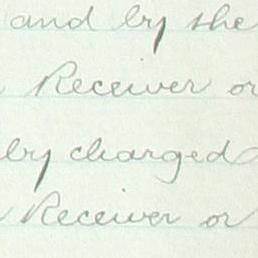 and by the
Receiver or
by charged
Receiver or